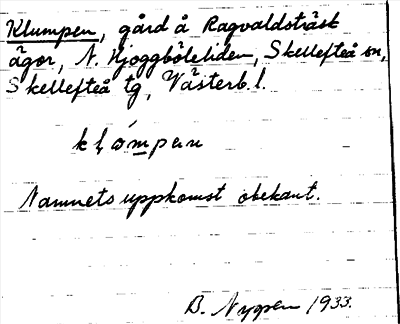 Klumpen, gård å Ragvaldsträsk
ägor, N. Hjoggböleliden, Skellefteå sn,
Skellefteå tg, Västerb. l.
kḷómpen
Namnets uppkomst obekant.
B. Nygren 1933.